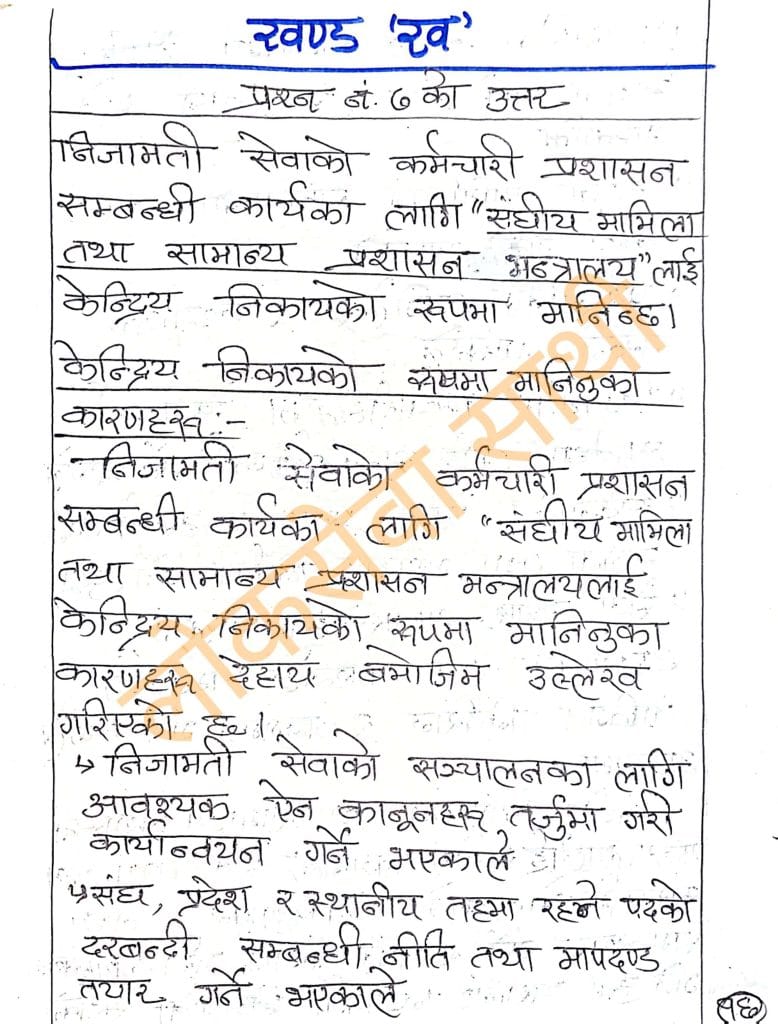 खण्ड 'ख'
प्रश्न नं. ७ को उत्तर
निजामती सेवाको कर्मचारी प्रशासन
सम्बन्धी कार्यका लागि "संघीय मामिला
तथा सामान्य प्रशासन मन्त्रालय" लाई
केन्द्रिय निकायको रूपमा मानिन्छ।
केन्द्रिय निकायको रूपमा मानिनुका
कारणहरू :-
निजामती सेवाको कर्मचारी प्रशासन
सम्बन्धी कार्यका लागि "संघीय मामिला
तथा सामान्य प्रशासन मन्त्रालयलाई
केन्द्रिय निकायको रूपमा मानिनुका
कारणहरू देहाय बमोजिम उल्लेख
गरिएको छ।
↳ निजामती सेवाको सञ्चालनका लागि
आवश्यक ऐन कानूनहरू तर्जुमा गरी
कार्यान्वयन गर्ने भएकाले
↳ संघ, प्रदेश र स्थानीय तहमा रहने पदको
दरबन्दी सम्बन्धी नीति तथा मापदण्ड
तयार गर्ने भएकाले
लोकसेवा साथी
१६